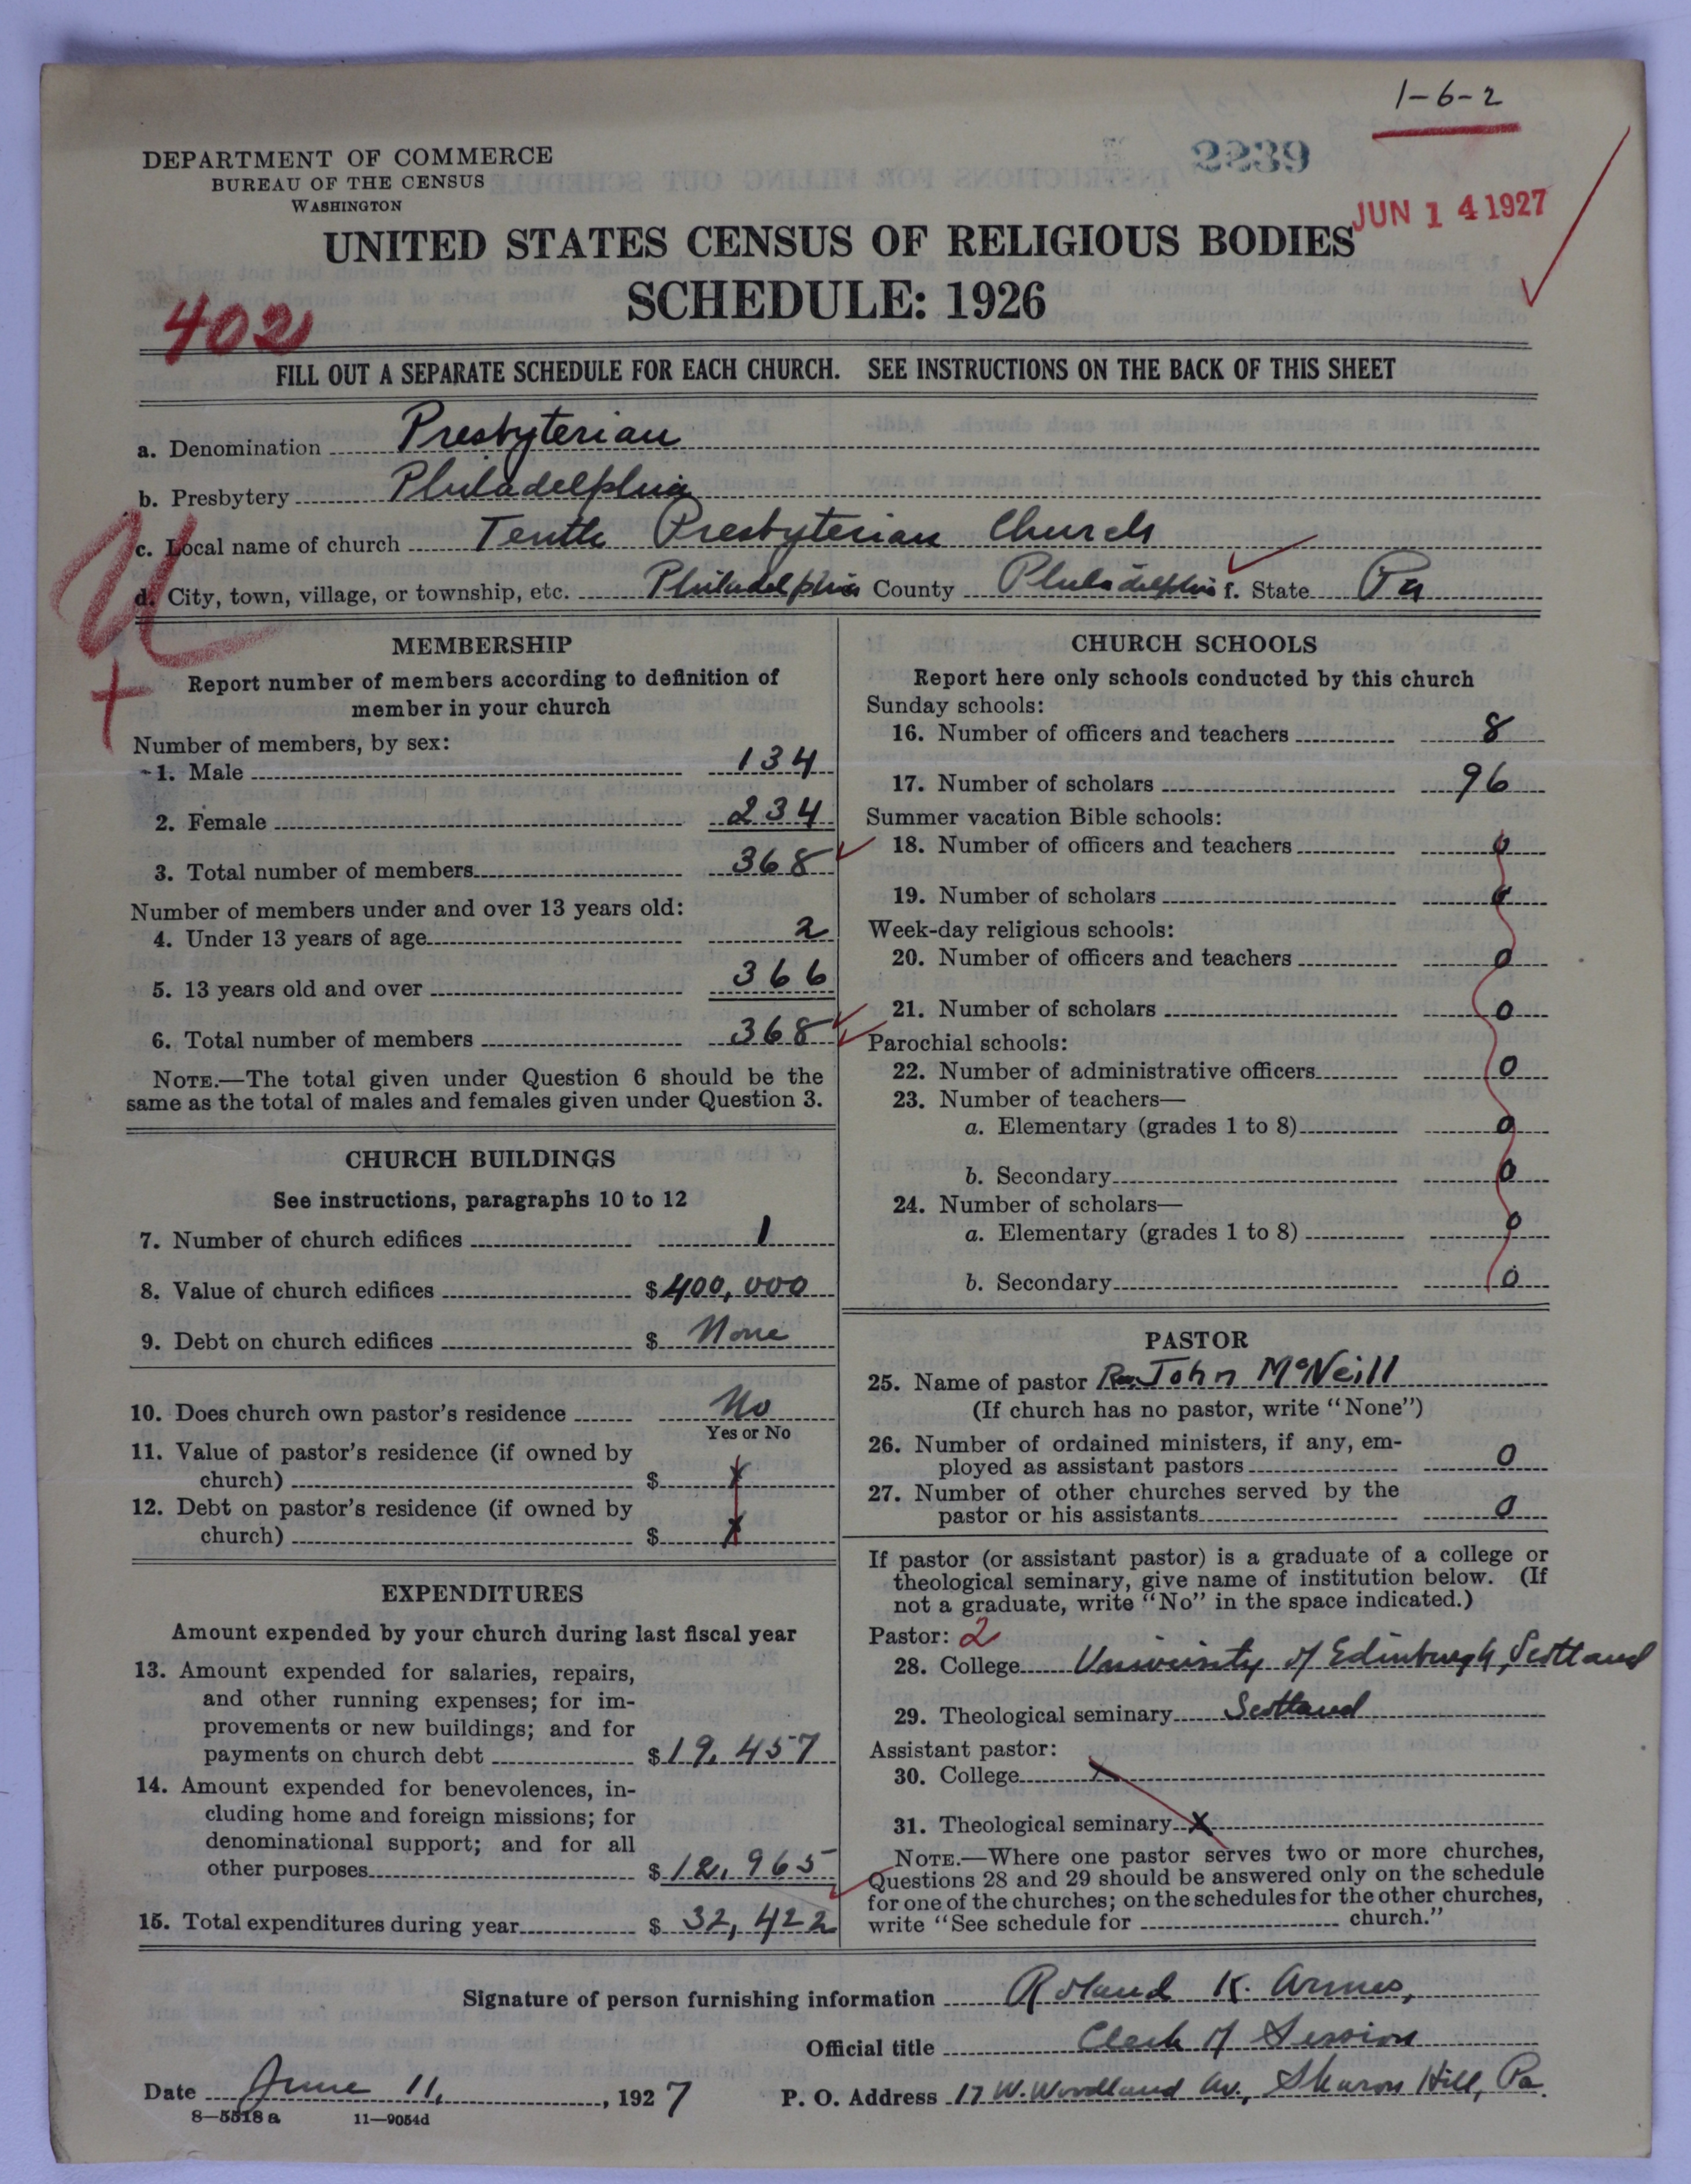 1-6-2
2239
JUN 14 1927
DEPARTMENT OF COMMERCE
BUREAU OF THE CENSUS
WASHINGTON
UNITED STATES CENSUS OF RELIGIOUS BODIES
SCHEDULE: 1926
402
FILL OUT A SEPARATE SCHEDULE FOR EACH CHURCH. SEE INSTRUCTIONS ON THE BACK OF THIS SHEET
a. Denomination Presbyterian
b. Presbytery Philadelphia
c. Local name of church Tenth Presbyterian Church
d. City, town, village, or township, etc. Philadelphia County Philadelphia f. State Pa
U
+
MEMBERSHIP
Report number of members according to definition of
member in your church
Number of members, by sex:
1. Male 134
2. Female 234
3. Total number of members 368
Number of members under and over 13 years old:
4. Under 13 years of age 2
5. 13 years old and over 366
6. Total number of members 368
NOTE.—The total given under Question 6 should be the
same as the total of males and females given under Question 3.
CHURCH BUILDINGS
See instructions, paragraphs 10 to 12
7. Number of church edifices 1
8. Value of church edifices $400,000
9. Debt on church edifices $ None
10. Does church own pastor's residence No
Yes or No
11. Value of pastor's residence (if owned by
church) $ x
12. Debt on pastor's residence (if owned by
church) $ x
EXPENDITURES
Amount expended by your church during last fiscal year
13. Amount expended for salaries, repairs,
and other running expenses; for im-
provements or new buildings; and for
payments on church debt $19,457
14. Amount expended for benevolences, in-
cluding home and foreign missions; for
denominational support; and for all
other purposes $12,965
15. Total expenditures during year $ 32,422
CHURCH SCHOOLS
Report here only schools conducted by this church
Sunday schools:
16. Number of officers and teachers 8
17. Number of scholars 96
Summer vacation Bible schools:
18. Number of officers and teachers 0
19. Number of scholars 0
Week-day religious schools:
20. Number of officers and teachers 0
21. Number of scholars 0
Parochial schools:
22. Number of administrative officers 0
23. Number of teachers—
a. Elementary (grades 1 to 8) 0
b. Secondary 0
24. Number of scholars—
a. Elementary (grades 1 to 8) 0
b. Secondary 0
PASTOR
25. Name of pastor Rev. John McNeill
(If church has no pastor, write "None")
26. Number of ordained ministers, if any, em-
ployed as assistant pastors 0
27. Number of other churches served by the
pastor or his assistants 0
If pastor (or assistant pastor) is a graduate of a college or
theological seminary, give name of institution below. (If
not a graduate, write "No" in the space indicated.)
Pastor: 2
28. College University of Edinburgh, Scotland
29. Theological seminary Scotland
Assistant pastor:
30. College x
31. Theological seminary x
NOTE.—Where one pastor serves two or more churches,
Questions 28 and 29 should be answered only on the schedule
for one of the churches; on the schedules for the other churches,
write "See schedule for church."
Signature of person furnishing information Roland K. Armes,
Official title Clerk of Session
Date June 11, 1927 P. O. Address 17 W. Woodland Av., Sharon Hill, Pa.
8—5518 a 11—9054d